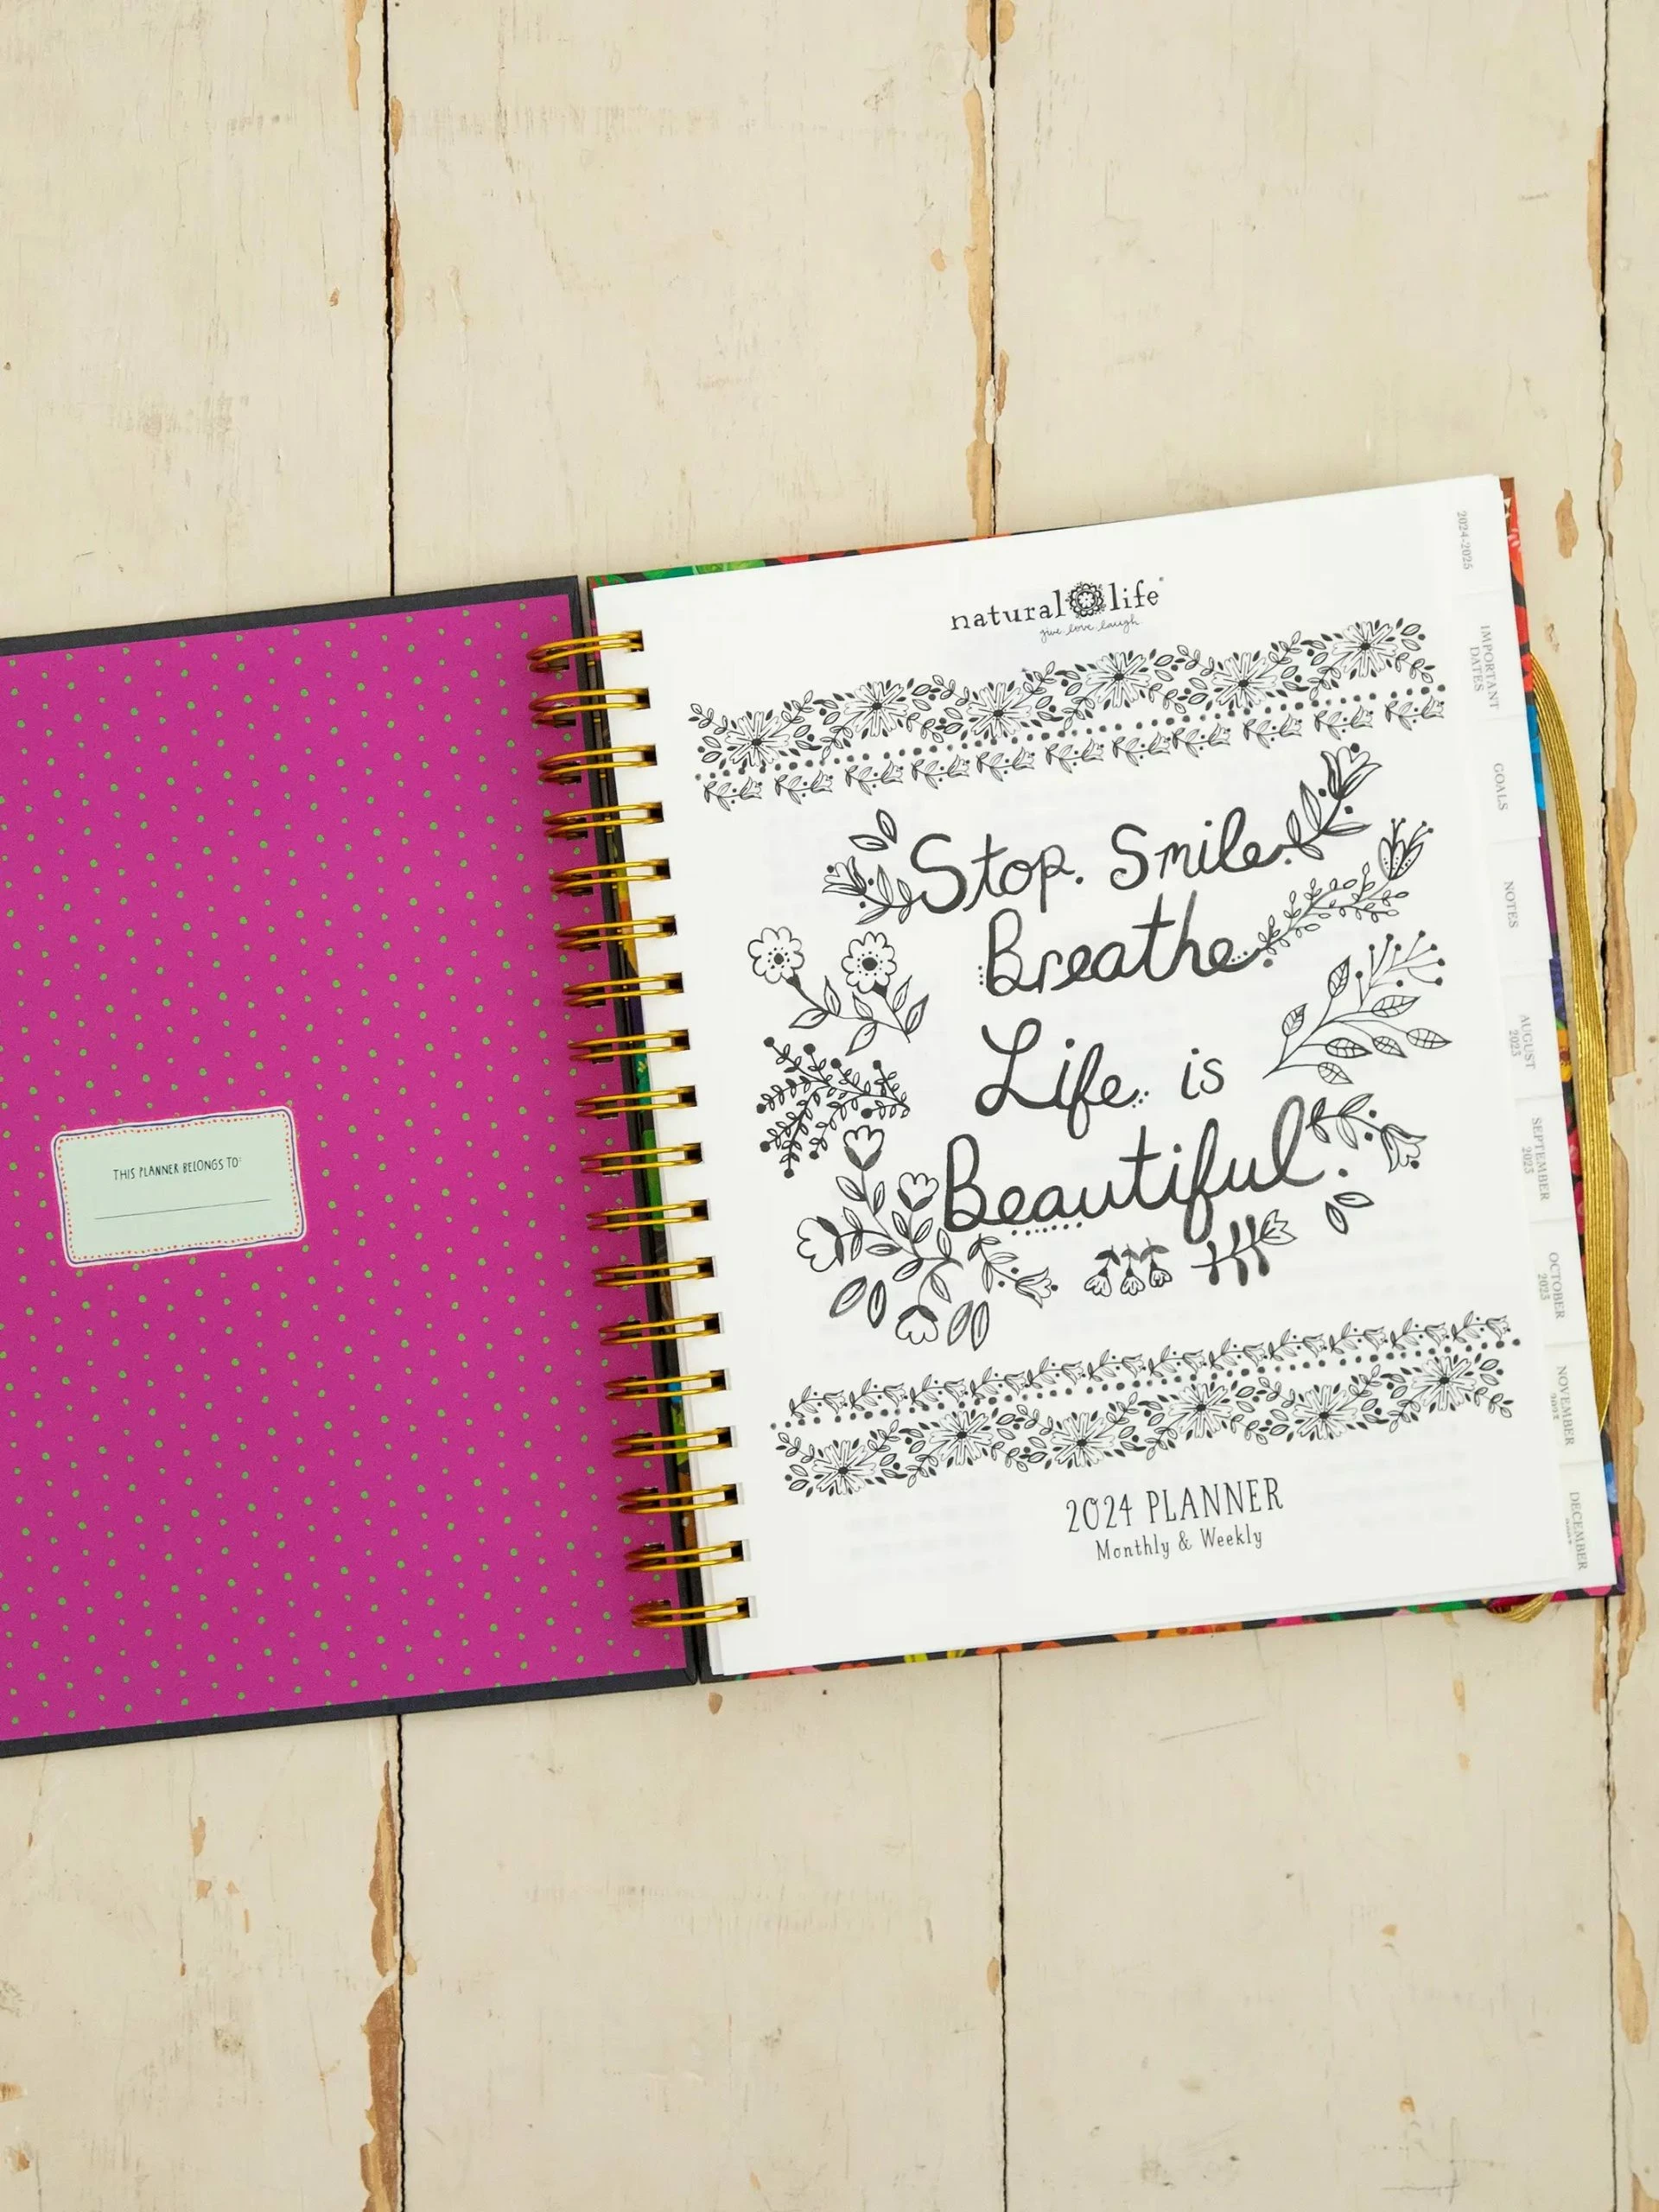 THIS PLANNER BELONGS TO:
natural life
give love laugh
Stop. Smile.
Breathe.
Life is
Beautiful.
2024 PLANNER
Monthly & Weekly
2024-2025
IMPORTANT
DATES
GOALS
NOTES
AUGUST
2023
SEPTEMBER
2023
OCTOBER
2023
NOVEMBER
2023
DECEMBER